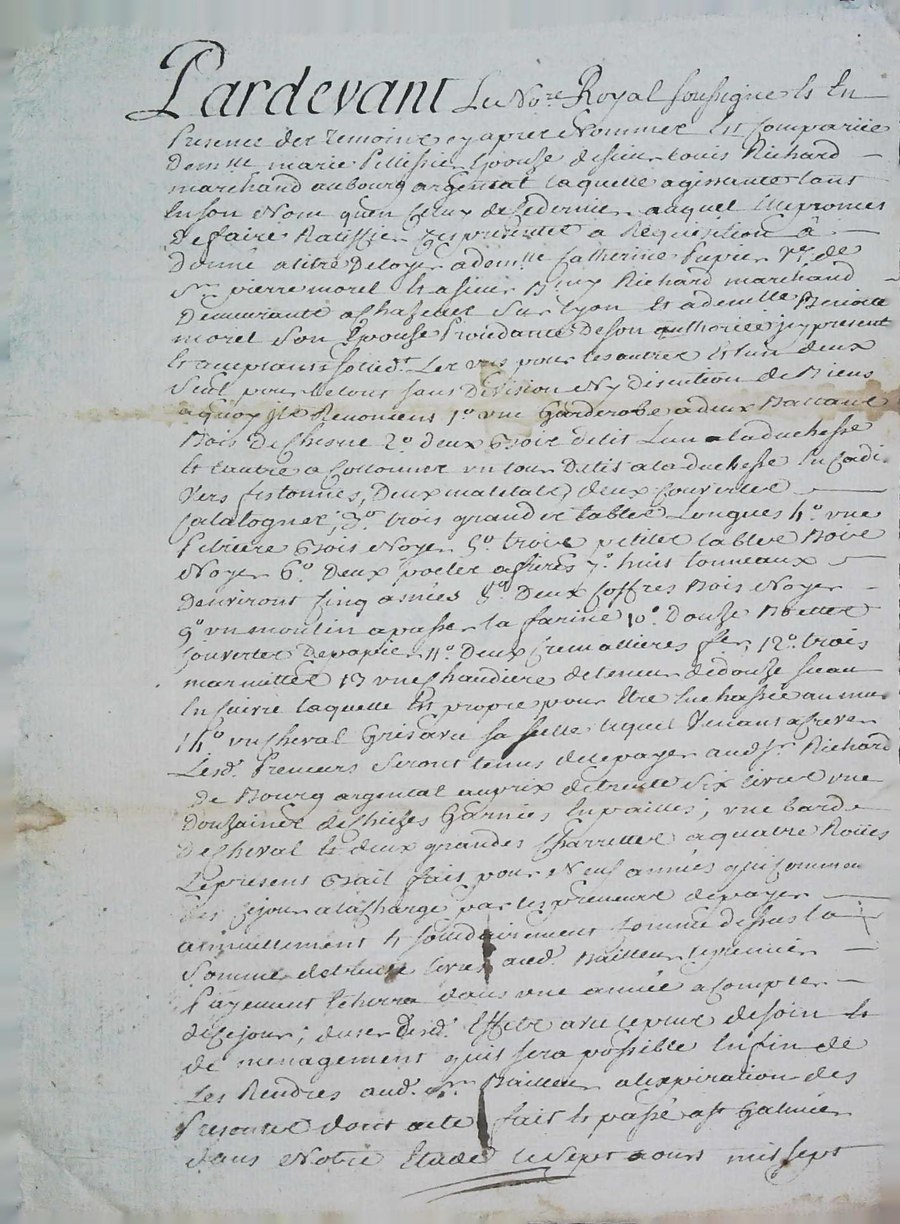 Pardevant Le No.re Royal soussigne et En
Presence des temoins cy apres Nommez Est Compariie
Dem.lle marie Pellissier Epouse de sieur Louis Richard
marchand au bourg argental laquelle agissante tant
En son Nom qu'en Celuy de Ce dernier auquel Elle promes
De faire Ratiffier Ces presentes a Requisition â
Donné a titre De loyer a dem.lle Catherine v.e de
S.r pierre morel et a sieur Richard marchand
Demeurants a Chazelles Sur Lyon et a dem.lle Benoitte
morel Son Epouse Procedante De Son authorité icy present
Et acceptants solid.t Les uns pour les autres Et lun deux
Seul pour Le tout sans Division Ny discution de Biens
a quoy Ils Renoncent 1.o une Garderobe a deux Battants
Bois De Chesne 2.o deux Bois de lit Lun a la duchesse
Et lautre a Collonnes un tour De lit a la duchesse En Cadi
vers festonnes, Deux matelats, deux Couvertes
Catalognes, 3.o trois grandes tables Longues 4.o une
Petriere Bois Noyer 5.o trois petites tables Bois
Noyer 6.o Deux poeles a frires 7.o huit tonneaux
Denviront Cinq anées 8.o Deux Coffres Bois Noyer
9.o un moulin a passer la farine 10.o Douze
Couvertes De papier 11.o Deux Cremallieres fer, 12.o trois
marmittes 13 une Chaudiere de tenue de douze seau
En Cuivre laquelle Est propre pour Etre Enchassée au mur
14.o un Cheval Gris avec sa selle lequel venant a Crever
Lesd. Preneurs seront tenus de le payer aud. s.r Richard
De Bourg argental au prix de trente Six livres une
Douzaines de Chezes Garnies En pailles; une barde
De Cheval et deux grandes Charrettes a quatre Roües
Le present Bail fait pour Neuf années qui Commen
des Ce jour a la Charge par les preneurs de payer
annuellement et solidairement Comme dessus la
Somme de trente livres aud. Bailleur Le premier
Payement Echerra dans une année a Compter
de Ce jour; duser Desd. Effets avec le plus de soin et
de menagement quil sera possible En fin de
Les Rendres aud. s.r Bailleur a lexpiration des
Presentes dont acte fait et passé a S.t Galmier
dans Notre Etude le sept aoust mil sept